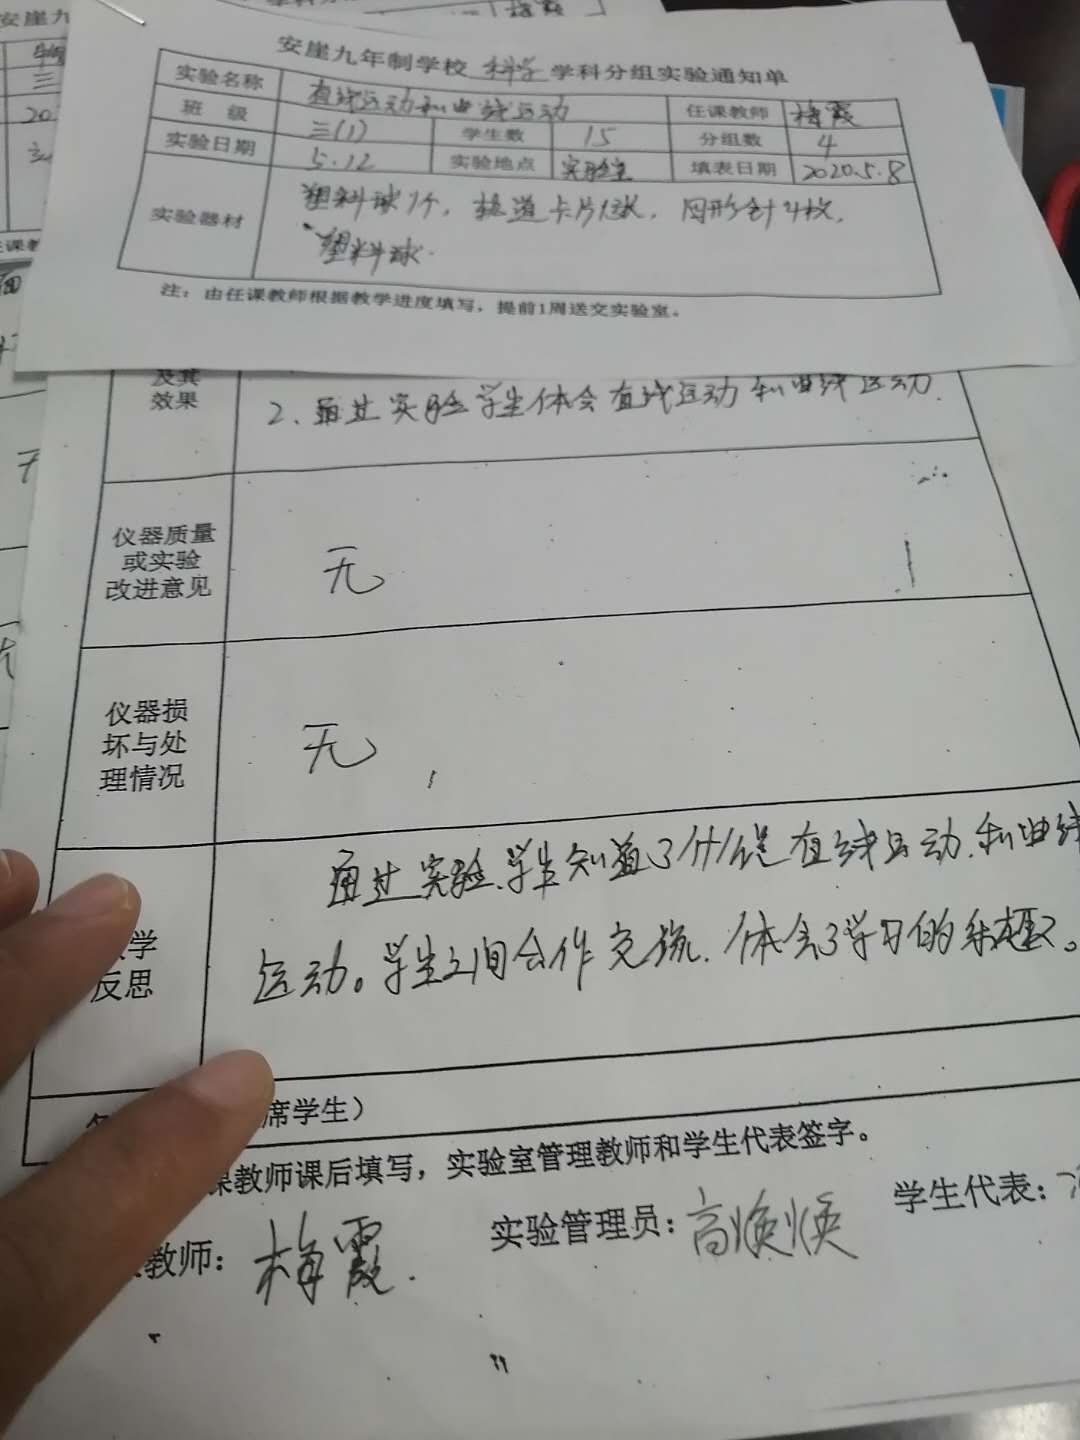 安崖九年制学校 科学 学科分组实验通知单
实验名称 直线运动和曲线运动 任课教师 梅霞
班 级 三(1) 学生数 15 分组数 4
实验日期 5.12 实验地点 实验室 填表日期 2020.5.8
实验器材 塑料球1个，轨道卡片1张，图形针4枚，
塑料球.
注：由任课教师根据教学进度填写，提前1周送交实验室。
及其
效果
2、通过实验学生体会直线运动和曲线运动.
仪器质量
或实验
改进意见
无
仪器损
坏与处
理情况
无
学
反思
通过实验、学生知道了什么是直线运动、和曲线
运动。学生之间合作交流、体会了学习的乐趣。
席学生）
课教师课后填写，实验室管理教师和学生代表签字。
教师: 梅霞. 实验管理员: 高焕焕 学生代表: